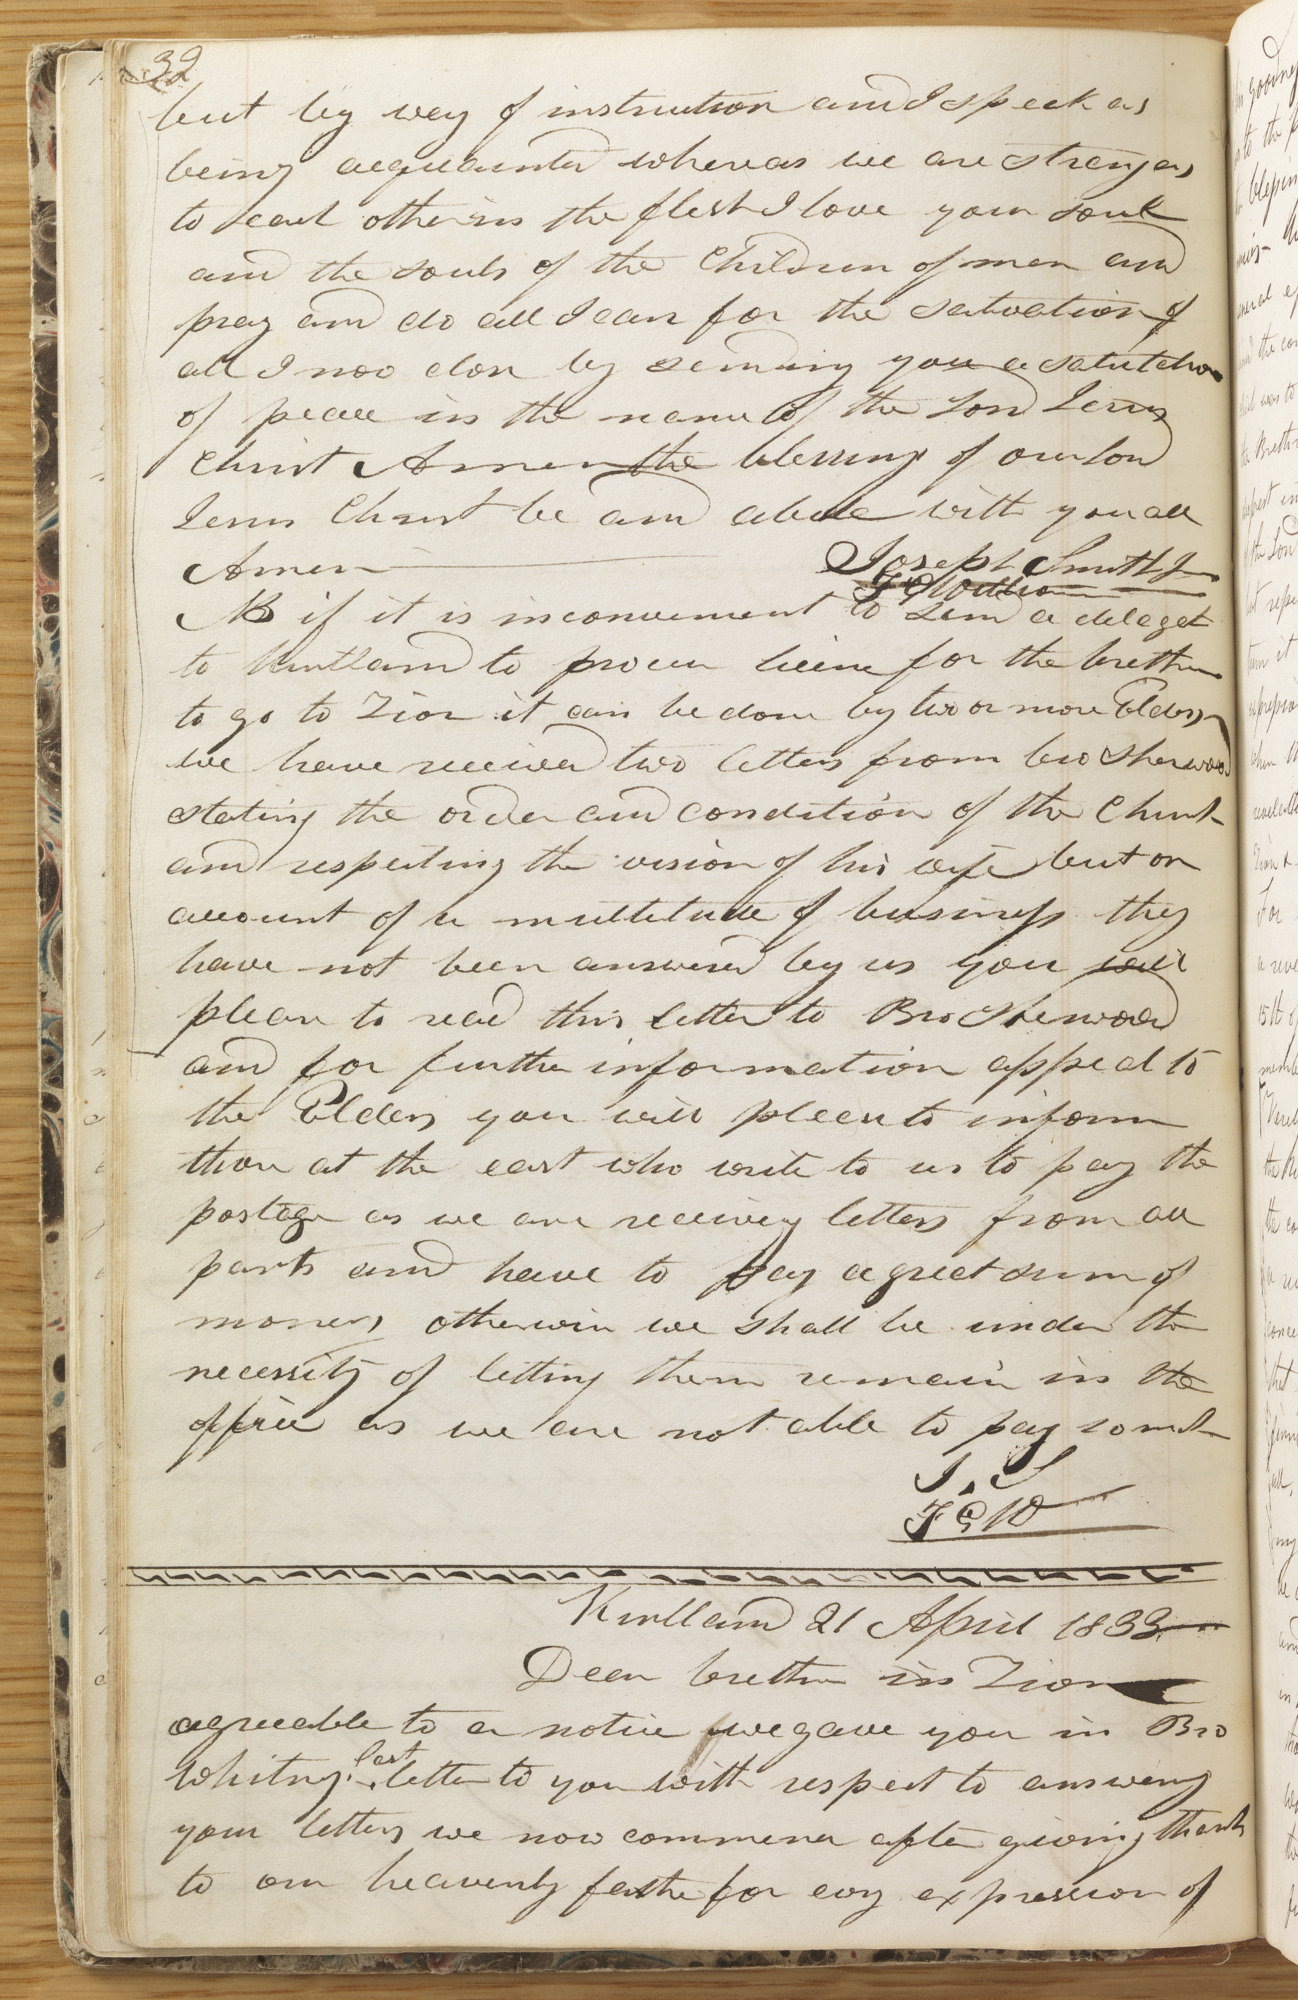 32
but by way of instruction and I speak as
being acquainted whereas we are strangers
to each other in the flesh I love your soul
and the souls of the Children of men and
pray and do all I can for the salvation of
all I now close by sending you a salutation
of peace in the name of the Lord Jesus
Christ Amen the blessing of our Lord
Jesus Christ be and abide with you all
Amen Joseph Smith Jr
F G Williams
NB if it is inconvenient to send a delegat
to Kirtland to procure lisince for the brethren
to go to Zion it can be done by two or more Elders
we have received two letters from bro Sherwood
stating the order and condition of the Church
and respecting the vision of his wife but on
account of a multitude of business they
have not been answered by us you will
please to read this letter to Bro Sherwood
and for further information appeal to
the Elders you will please to inform
those at the east who write to us to pay the
postage as we are receiveing letters from all
parts and have to pay a great sum of
money otherwise we shall be under the
necessity of letting them remain in the
office as we are not able to pay so much
J. S
F G W
Kirtland 21 April 1833
Dear brethren in Zion
agreeable to a notice we gave you in Bro
Whitneys last letter to you with respect to answering
your letters we now commence after giving thanks
to our heavenly father for evry expression of